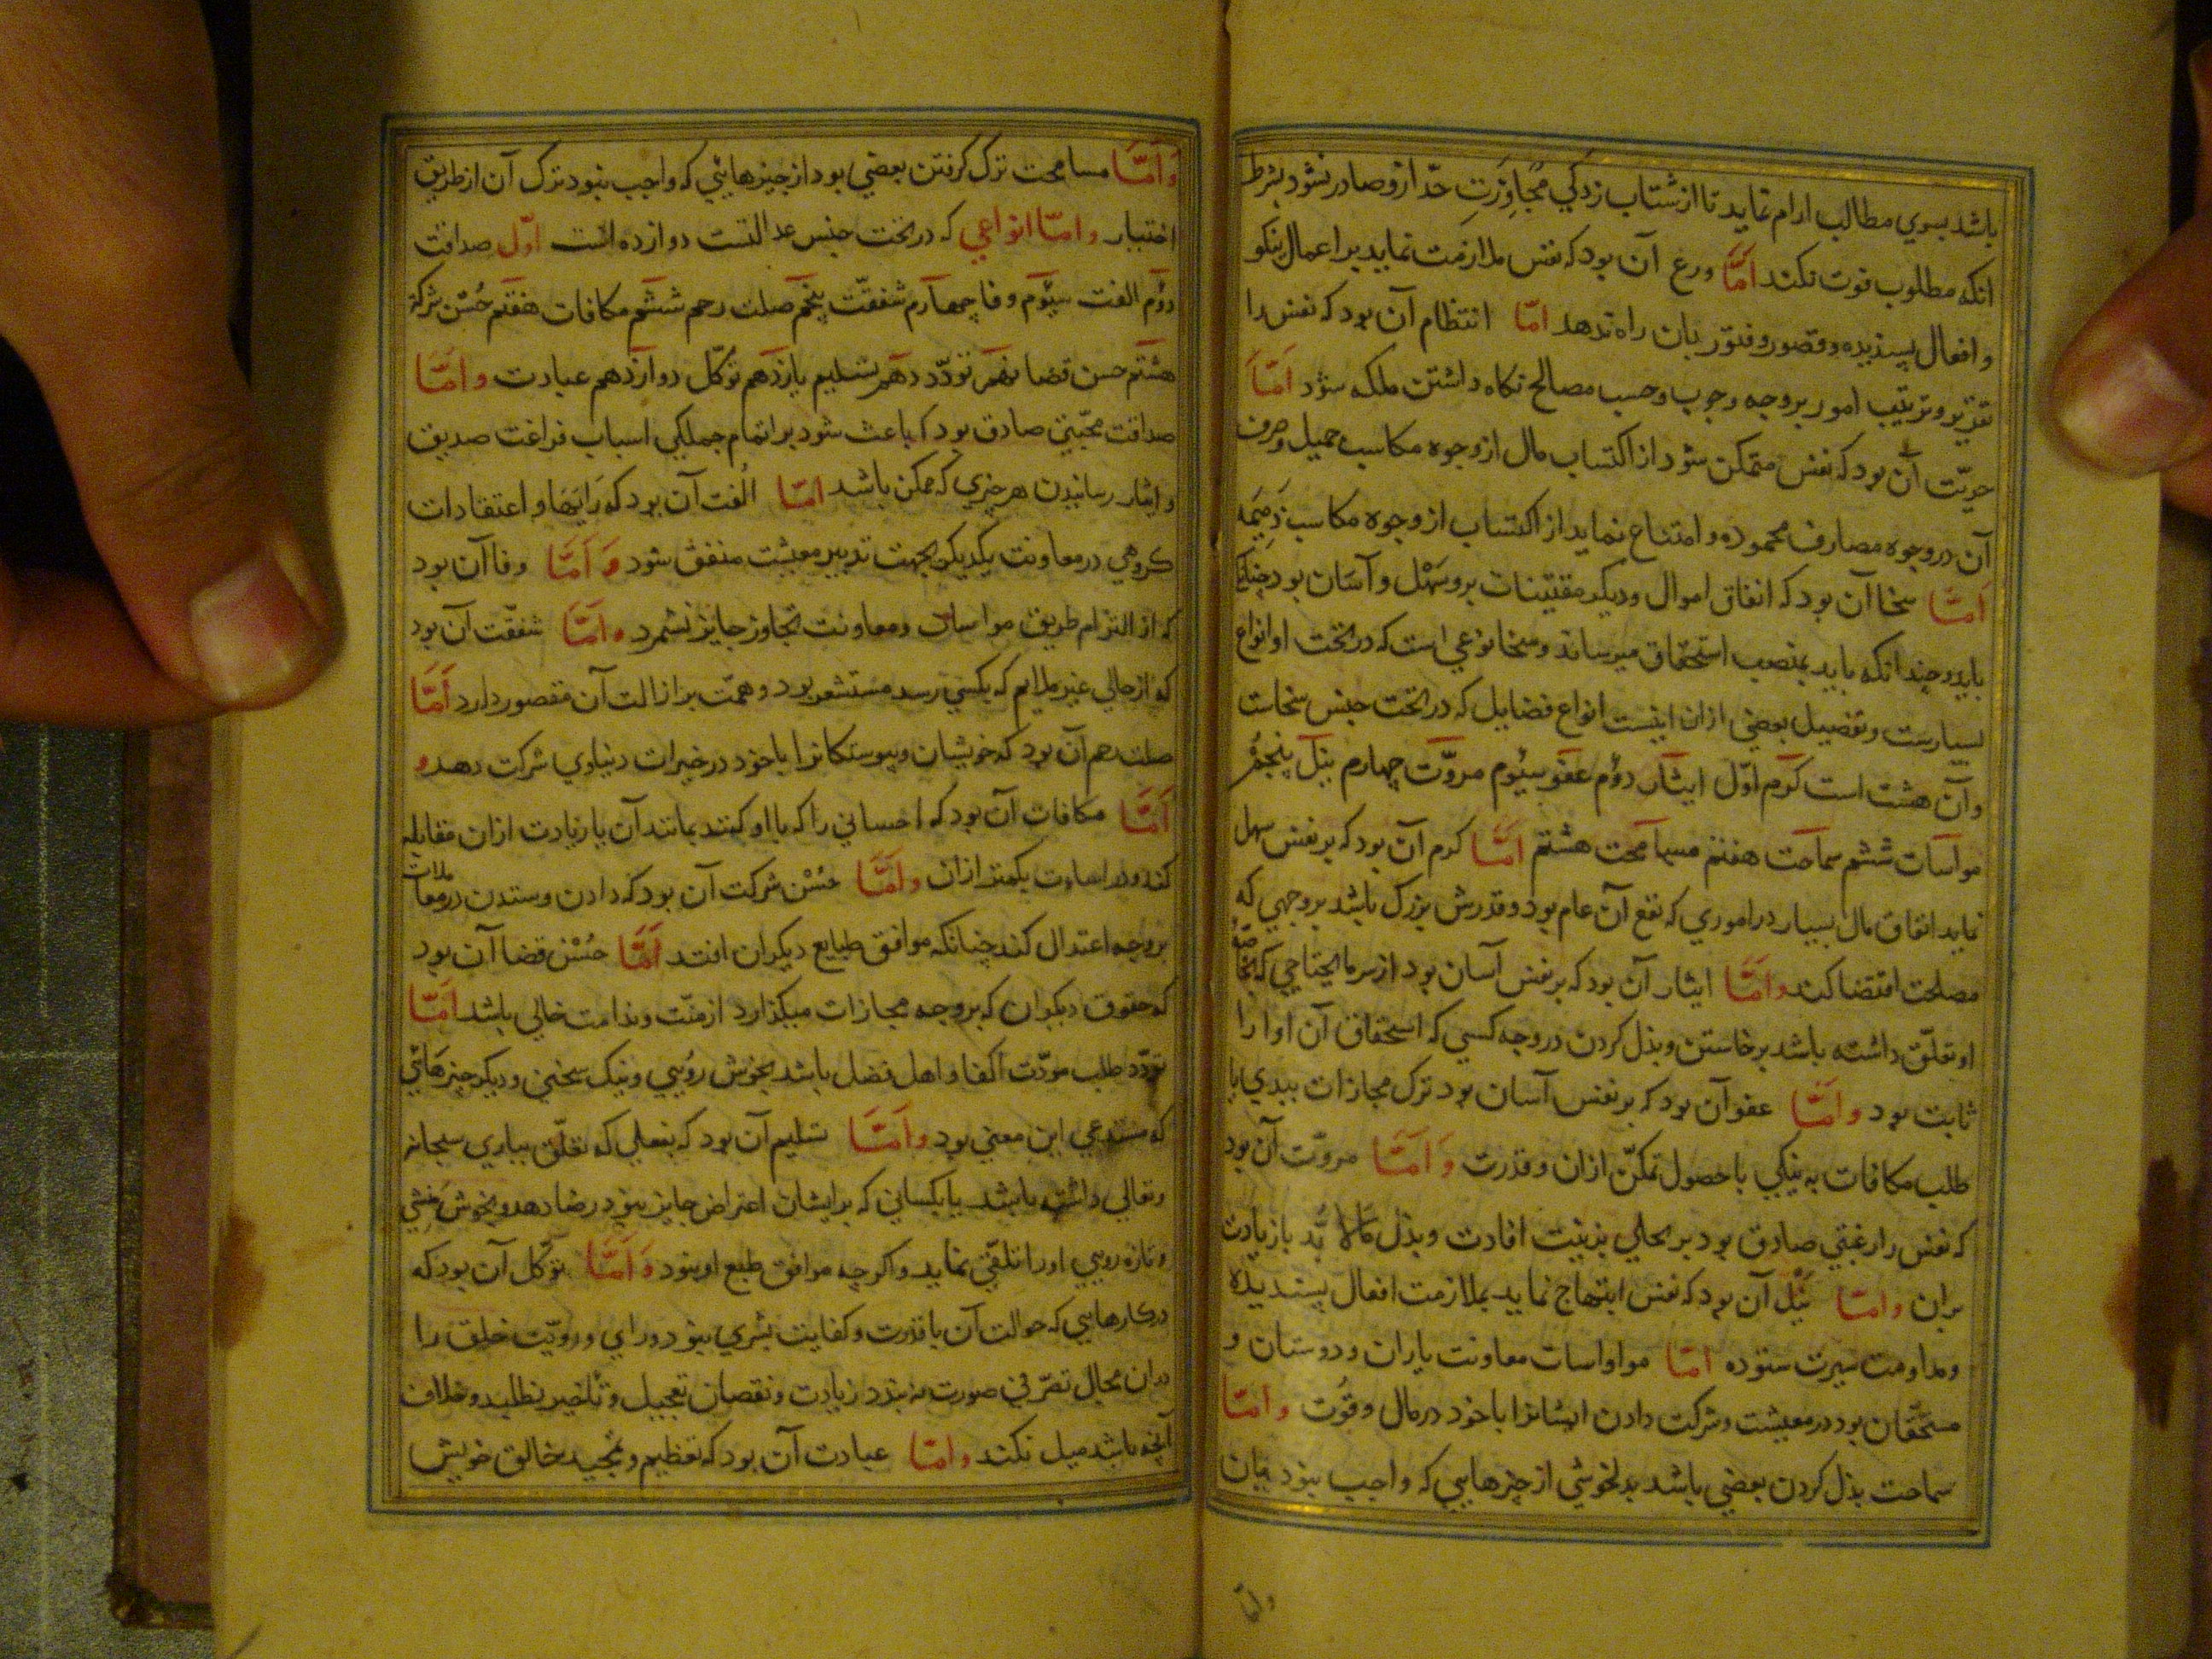 باشد بسوي مطالب ارام نمايد تا از شتاب زدكي مُجاوِزَتِ حدّ ازو صادر نشود بشرط
انكه مطلوب فوت نكند امّا ورع آن بود كه نفس ملازمت نمايد بر اعمال نيكو
و افعال پسنديده و قصور و فتور بان راه ندهد امّا انتظام آن بود كه نفس را
تقدير و ترتيب امور بر وجه وجوب و حسب مصالح نكاه داشتن ملكه شود امّا
حريّت آن بود كه نفس متمكن شود از اكتساب مال از وجوه مكاسب جميل و صرف
آن در وجوه مصارف محموده و امتناع نمايد از اكتساب از وجوه مكاسب ذميمه
امّا سخا آن بود كه انفاق اموال و ديكر مقتنيات برو سَهْل و آسان بود چنانكه
بايد و چندانكه بايد بمنصب استحقاق ميرساند و سخا نوعي است كه در تحت او انواع
بسيارست و تفصيل بعضي ازان اينست انواع فضايل كه در تحت جنس سخاست
و آن هشت است كرم اوّل ايثار دوُم عفو سيُوم مروّت چهارم نيل پنجم
مواسات ششم سماحت هفتم مسامحت هشتم امّا كرم آن بود كه بر نفس سهل
نمايد انفاق مال بسيار در اموري كه نفع آن عام بود و قدرش بزرك باشد بر وجهي كه
مصلحت اقتضا كند و امّا ايثار آن بود كه بر نفس آسان بود از سر مايحتاجي كه بخاصه
او تعلّق داشته باشد برخاستن و بذل كردن در وجه كسي كه استحقاق آن او را
ثابت بود و امّا عفو آن بود كه بر نفس آسان بود ترك مجازات ببدي يا
طلب مكافات به نيكي با حصول تمكّن ازان و قدرت و امّا مروّت آن بود
كه نفس را رغبتي صادق بود بر تحلي بزينت افادت و بذل مالا بُد با زيادت
بران و امّا نيْل آن بود كه نفس ابتهاج نمايد بملازمت افعال پسنديده
و مداومت سيرت ستوده امّا مواواسات معاونت ياران و دوستان و
مستحقّان بود در معيشت و شركت دادن ايشانرا با خود در مال و قُوت و امّا
سماحت بذل كردن بعضي باشد بدلخوشي از چيزهايي كه واجب نبود بيان
و امّا
وَ امّا مسامحت ترك كرفتن بعضي بود از چيزهايئي كه واجب نبود ترك آن از طريق
اختيار و امّا انواعي كه در تحت جنس عدالتست دوازده است اوّل صداقت
دوُم الفت سيُوم وفا چهارم شفقّت پنجم صلت رحم ششم مكافات هفتم حُسْن شركة
هشتم حسن قضا نهم تودّد دهم تسليم يازدهم توكّل دوازدهم عبادت و امّا
صداقت محبّتي صادق بود كه باعث شود بر اتمام جملكي اسباب فراغت صديق
و ايثار رسانيدن هر چيزي كه ممكن باشد امّا الُفت آن بود كه رَايَها و اعتقادات
كروهي در معاونت يكديكر بجهت تدبير معيشت متفق شود وَ امّا وفا آن بود
كه از التزام طريق مواسات و معاونت تجاوز جايز نشمرد و امّا شفقّت آن بود
كه از حالي غير ملايم كه بكسي رسد مستشعر بود و همّت بر ازالت آن مقصور دارد امّا
صلت رحم آن بود كه خويشان و پيوستكانرا با خود در خيرات دنياوي شركت دهد و
امّا مكافات آن بود كه احساني را كه با او كنند بمانند آن يا زيادت ازان مقابله
كند و در اساءت بكمتر ازان و امّا حُسْن شركت آن بود كه دادن و ستدن در معاملات
بر وجه اعتدال كند چنانكه موافق طبايع ديكران افتد امّا حُسْن قضا آن بود
كه حقوق ديكران كه بر وجه مجازات ميكذارد از منّت و ندامت خالي باشد امّا
تودّد طلب مودّت اكفا و اهل فضل باشد بخوش رويي و نيك سخني و ديكر چيزهائي
كه مستدعي اين معني بود و امّا تسليم آن بود كه بفعلي كه تعلّق بباري سبحانه
و تعالي داشته باشد يا بكساني كه بر ايشان اعتراض جايز نبود رضا دهد و بخوش منشي
و تازه رويي اورا تلقّي نمايد و اكرچه موافق طبع او نبود وَ امّا توكّل آن بود كه
در كارهايي كه حوالت آن با قدرت و كفايت بشري نبود و راي و رويّت خلق را
دران مجال تصرّفي صورت نه بندد زيادت و نقصان تعجيل و تأخير نطلبد و خلاف
آنچه باشد ميل نكند و امّا عبادت آن بود كه تعظيم و تمجيد خالق خويش